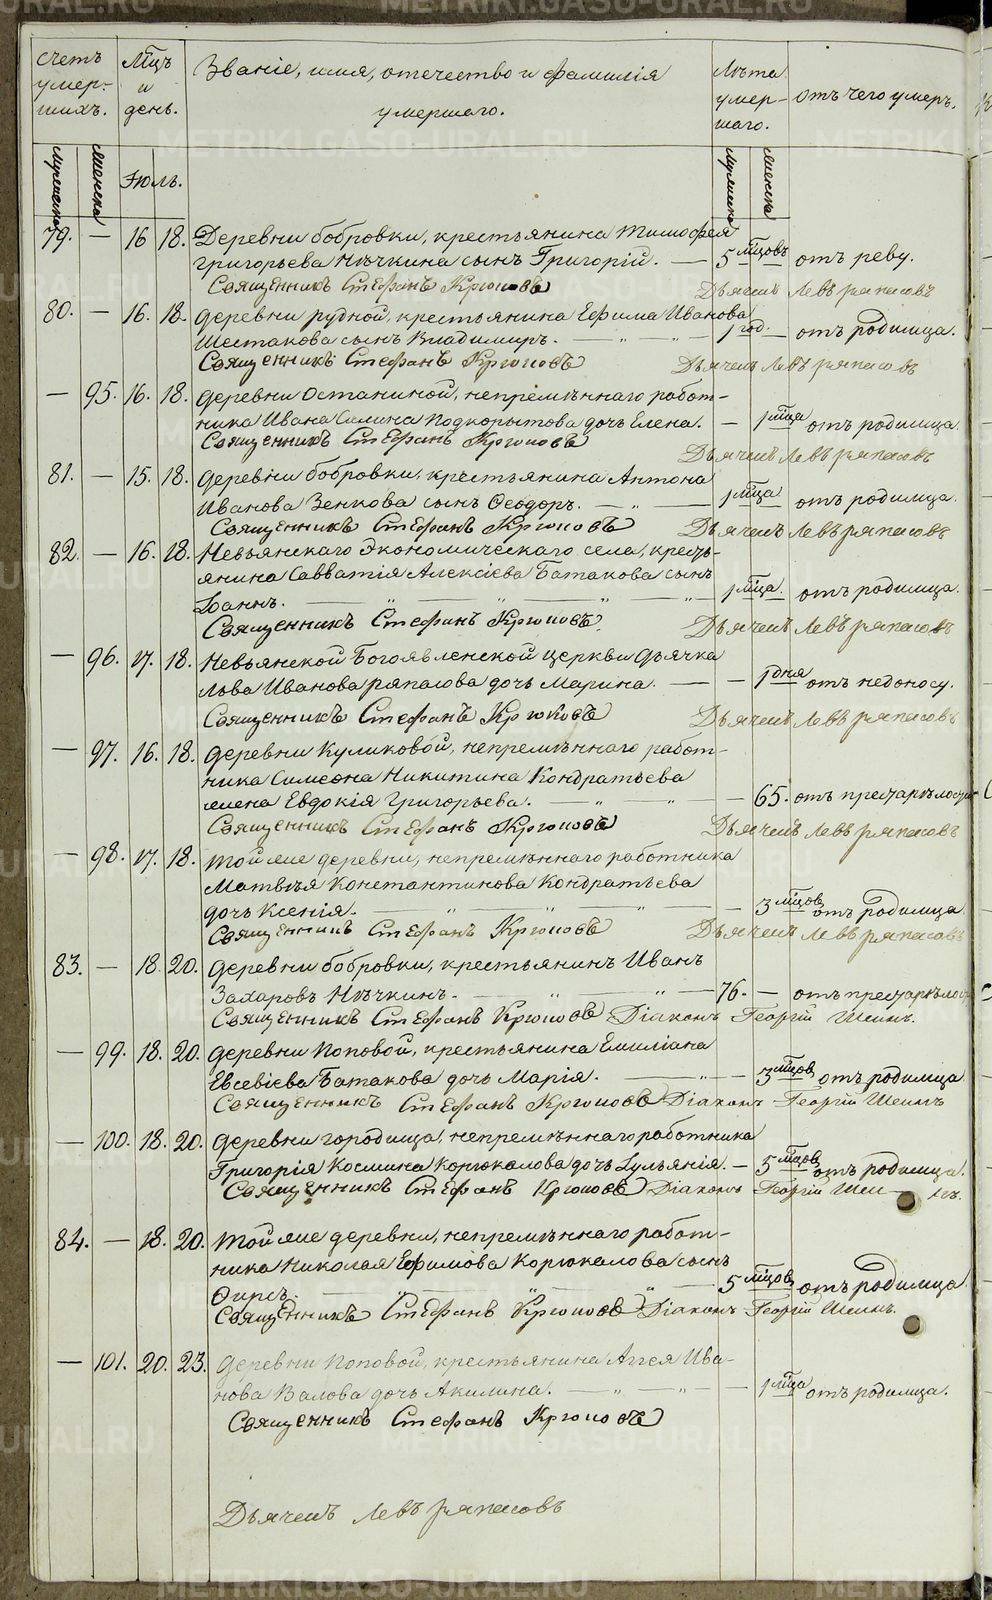 Счетъ умер-шихъ.
Мѣцъ и день.
Званіе, имя, отечество и фамилія
умершаго.
Лѣта умер-шаго.
отъ чего умеръ.
Мужеска
Женска
Іюль.
Мужеска
Женска
79. — 16 18. Деревни бобровки, крестьянина Тимофея
Григорьева Нѣчкина сынъ Григорій. — 5 мѣцовъ отъ реву.
Священникъ Стефанъ Крюковъ Дьячекъ Левъ ряпасовъ
80. — 16. 18. деревни рудной, крестьянина Ефима Иванова
Шестакова сынъ Владимиръ. — „ — „ — 1 год. — отъ родимца.
Священникъ Стефанъ Крюковъ Дьячекъ Левъ ряпасовъ
— 95. 16. 18. деревни Останиной, непремѣннаго работ-
ника Ивана Силина Подкорытова дочь Елена. — 1 мѣца отъ родимца.
Священникъ Стефанъ Крюковъ Дьячекъ Левъ ряпасовъ
81. — 15. 18. деревни бобровки, крестьянина Антона
Иванова Зенкова сынъ Ѳеодоръ. — „ — 1 мѣца отъ родимца.
Священникъ Стефанъ Крюковъ Дьячекъ Левъ ряпасовъ
82. — 16. 18. Невьянскаго Экономическаго села, кресть-
янина Савватія Алексіева Батакова сынъ
Іоаннъ. — „ — „ — „ — „ — 1 мѣца. отъ родимца.
Священникъ Стефанъ Крюковъ Дьячекъ Левъ ряпасовъ
— 96. 17. 18. Невьянской Богоявленской церкви дьячка
Льва Иванова ряпасова дочь Марина. — — 1 дня отъ недоносу.
Священникъ Стефанъ Крюковъ Дьячекъ Левъ ряпасовъ
— 97. 16. 18. деревни Куликовой, непремѣннаго работ-
ника Симеона Никитина Кондратьева
жена Евдокія Григорьева. — „ — „ — 65. отъ престарѣлости
Священникъ Стефанъ Крюковъ Дьячекъ Левъ ряпасовъ
— 98. 17. 18. Той же деревни, непремѣннаго работника
Матвѣя Константинова Кондратьева
дочь Ксенія. — „ — „ — 3 мѣцов отъ родимца
Священникъ Стефанъ Крюковъ Дьячекъ Левъ ряпасовъ
83. — 18. 20. деревни бобровки, крестьянинъ Иванъ
Захаровъ Нѣчкинъ. — „ — „ — 76. — отъ престарѣлости
Священникъ Стефанъ Крюковъ Діаконъ Георгій Шеинъ.
— 99. 18. 20. деревни Поповой, крестьянина Емиліана
Евсевіева Батакова дочь Марія. — „ — 3 мѣцов отъ родимца
Священникъ Стефанъ Крюковъ Діаконъ Георгій Шеинъ
— 100. 18. 20. деревни городища, непремѣннаго работника
Григорія Космина Корюкалова дочь Іульянія. — 5 мѣцов отъ родимца.
Священникъ Стефанъ Крюковъ Діаконъ Георгій Шеи нъ.
84. — 18. 20. Той же деревни, непремѣннаго работ-
ника Николая Ефимова Корюкалова сынъ
Ѳирсъ. — „ — „ — 5 мѣцов отъ родимца
Священникъ Стефанъ Крюковъ Діаконъ Георгій Шеинъ.
— 101. 20. 23. деревни Поповой, крестьянина Аггея Ива-
нова Валова дочь Акилина. — „ — „ — 1 мѣца отъ родимца.
Священникъ Стефанъ Крюковъ
Дьячекъ Левъ ряпасовъ
METRIKI.GASO-URAL.RU